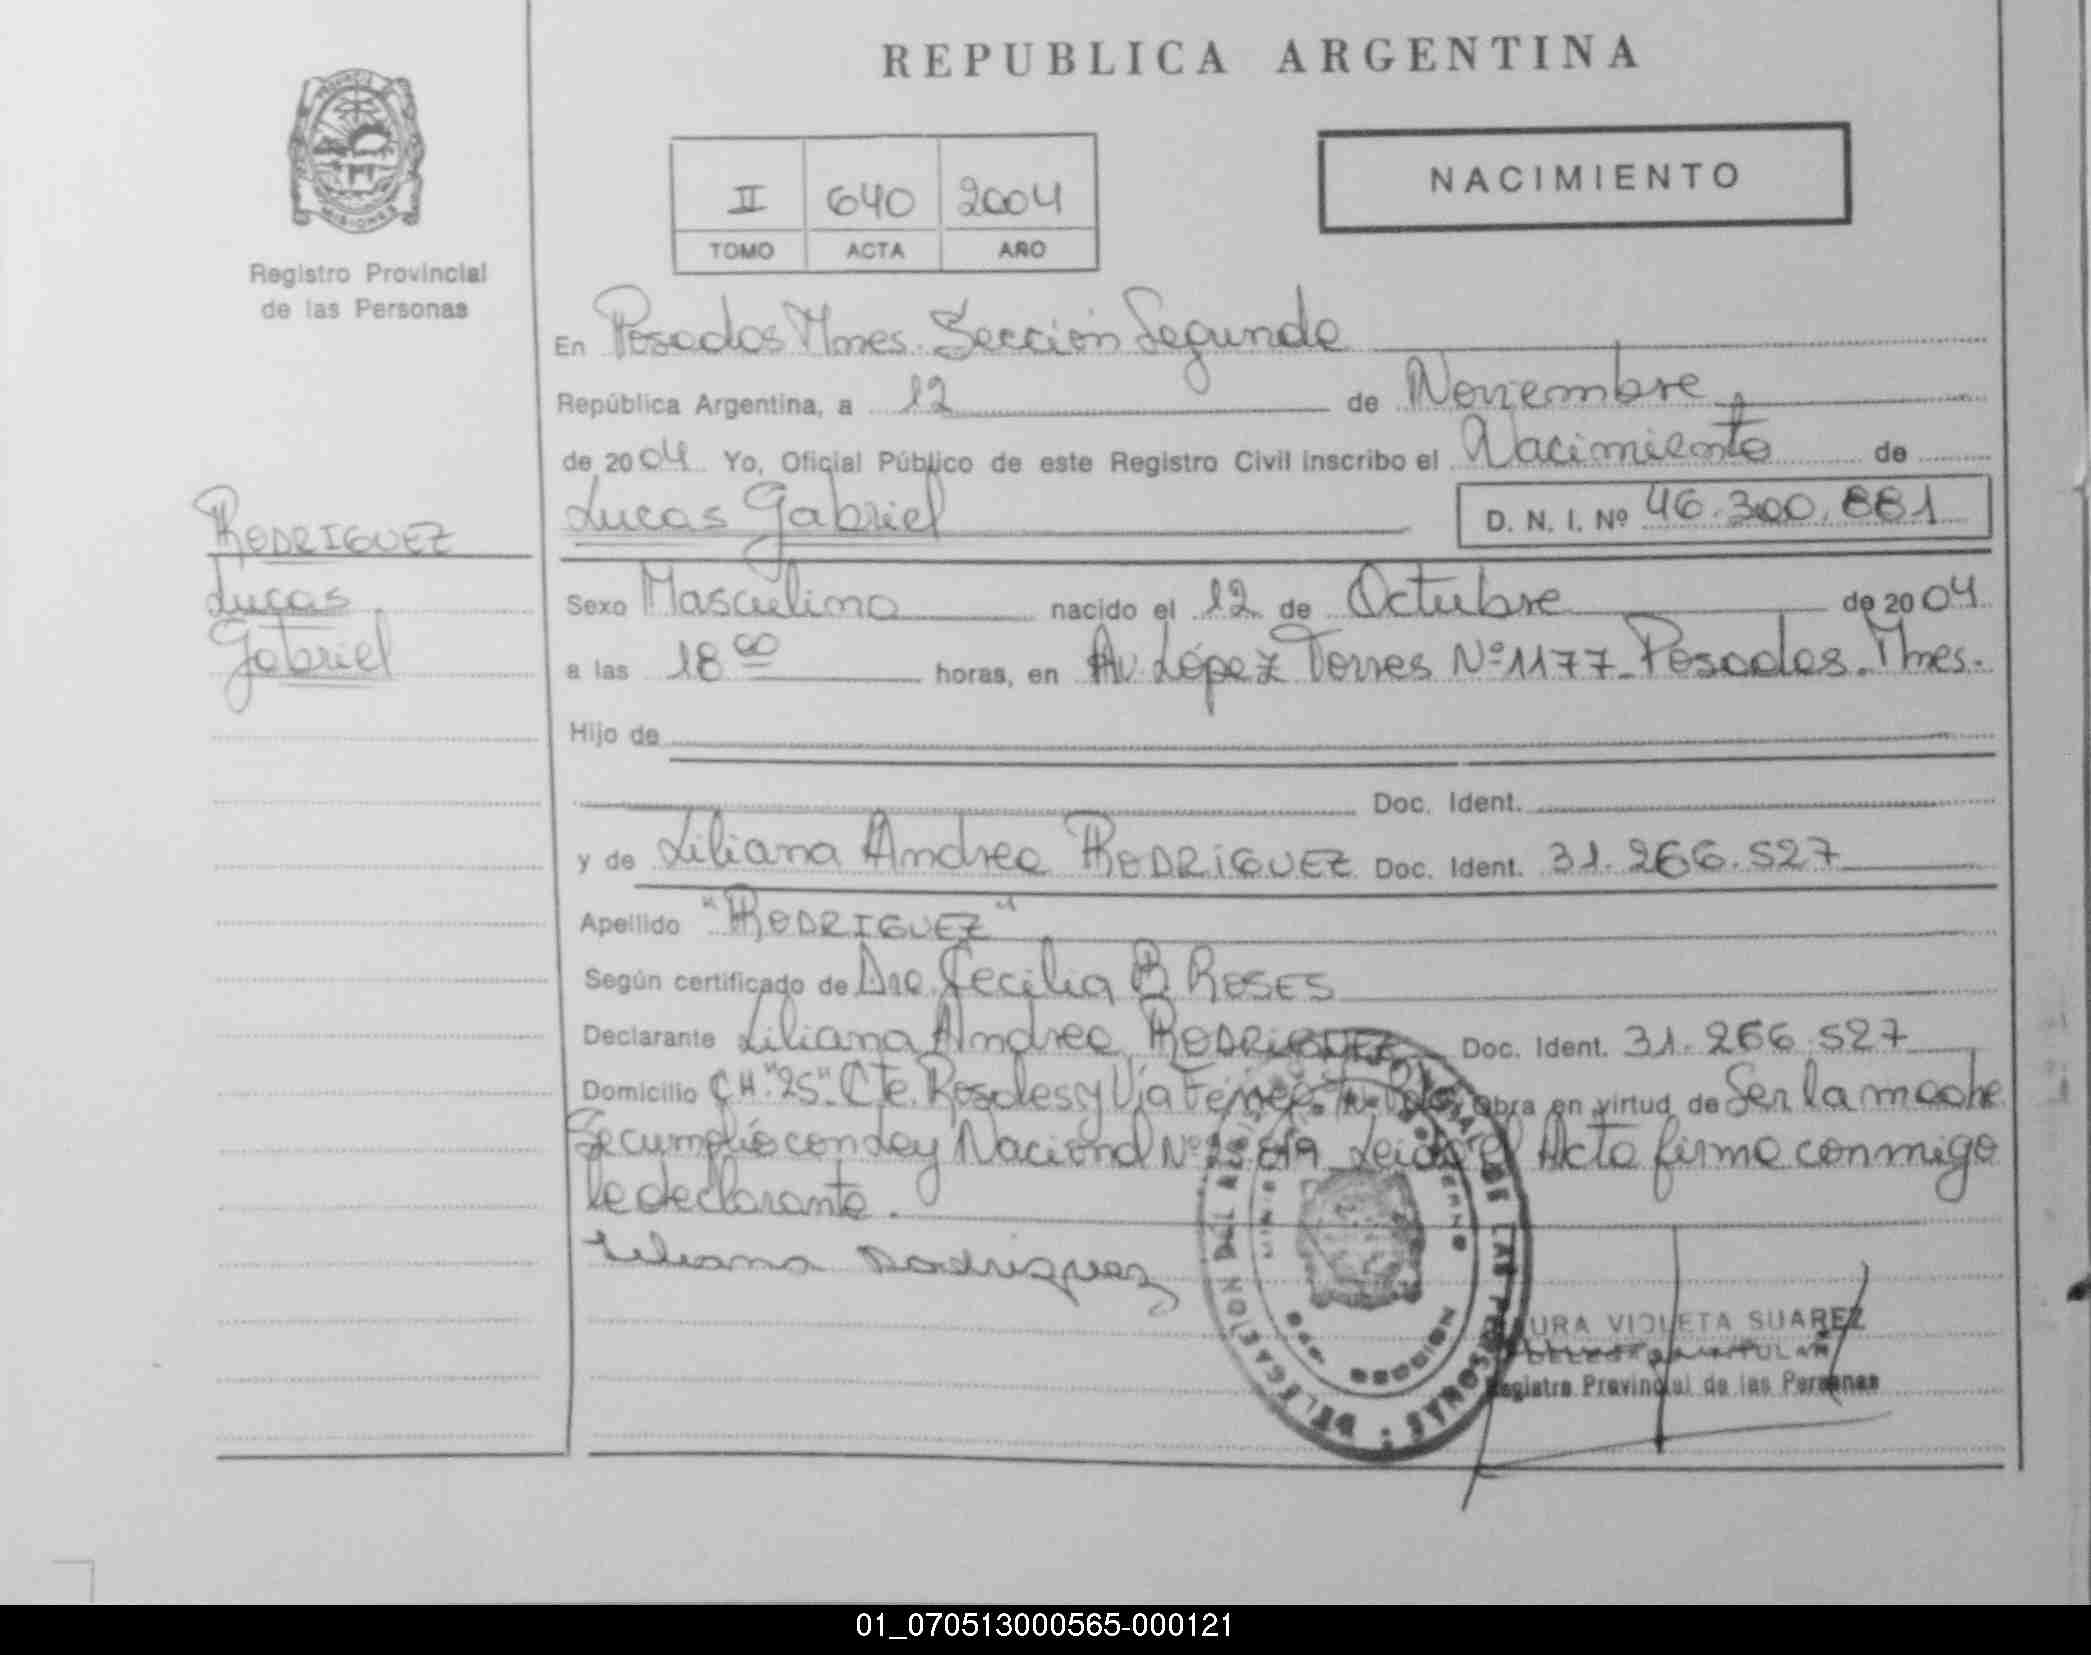 REPUBLICA ARGENTINA
PROVINCIA
MISIONES
Registro Provincial
de las Personas
II 640 2004
TOMO ACTA AÑO
NACIMIENTO
En Posadas Mnes. Sección Segunda
República Argentina, a 12 de Noviembre
de 2004 Yo, Oficial Público de este Registro Civil inscribo el Nacimiento de
Lucas Gabriel D. N. I. Nº 46.300.881
RODRIGUEZ
Lucas
Gabriel
Sexo Masculino nacido el 12 de Octubre de 2004
a las 18 00 horas, en Av. López Torres Nº 1177 - Posadas - Mnes.
Hijo de
Doc. Ident.
y de Liliana Andrea RODRIGUEZ Doc. Ident. 31.266.527
Apellido "RODRIGUEZ"
Según certificado de Dra. Cecilia B. ROSES
Declarante Liliana Andrea RODRIGUEZ Doc. Ident. 31.266.527
Domicilio CH "25" Cte. Rosales y Vía Férrea Obra en virtud de Ser la madre
Se cumplió con Ley Nacional Nº Leida el Acta firma conmigo
la declarante.
Liliana Rodriguez
DELEGACION DE LAS PERSONAS
URA VIOLETA SUAREZ
Registro Provincial de las Personas
01_070513000565-000121